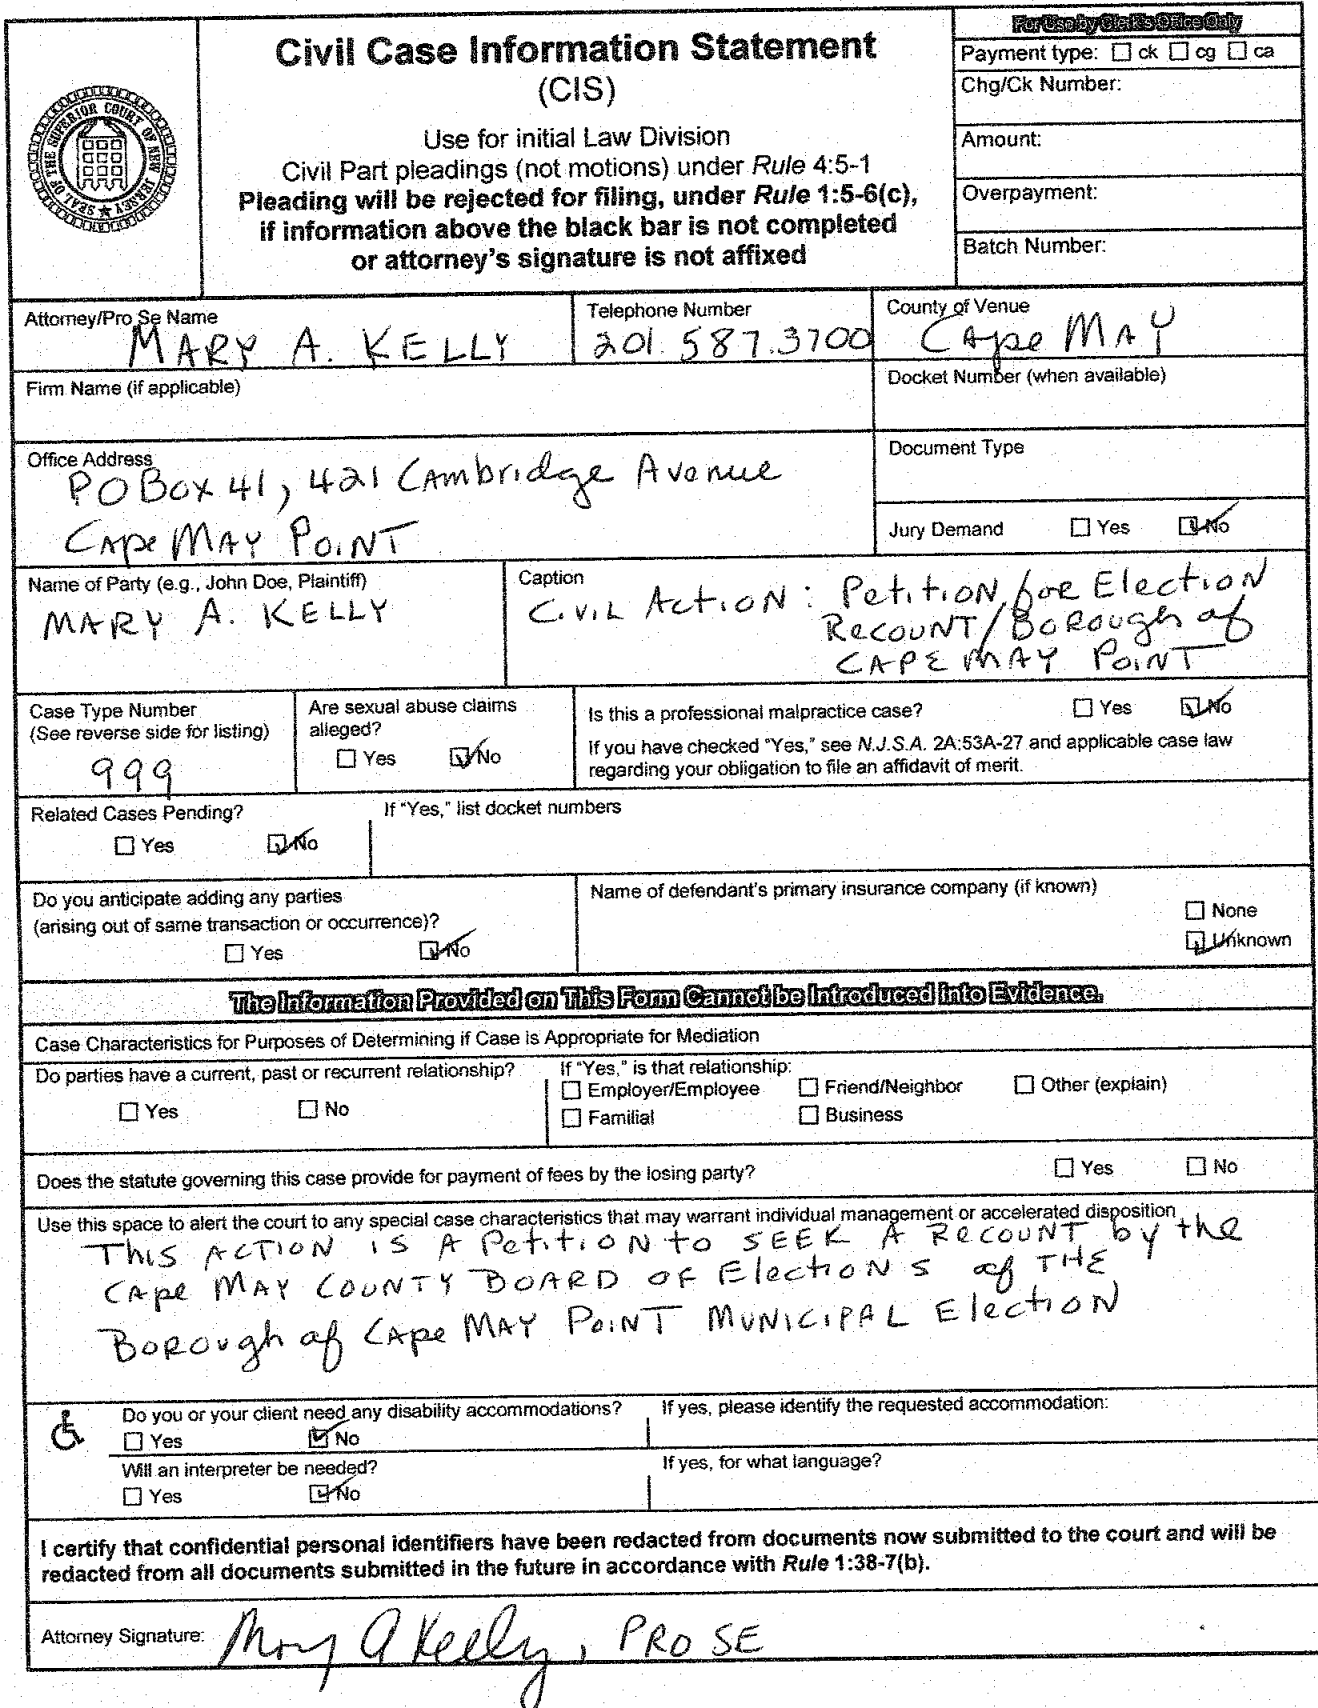 For Use by Clerk's Office Only
Civil Case Information Statement
(CIS)
Use for initial Law Division
Civil Part pleadings (not motions) under Rule 4:5-1
Pleading will be rejected for filing, under Rule 1:5-6(c),
if information above the black bar is not completed
or attorney's signature is not affixed
SEAL OF THE SUPERIOR COURT OF NEW JERSEY
Payment type: ☐ ck ☐ cg ☐ ca
Chg/Ck Number:
Amount:
Overpayment:
Batch Number:
Attorney/Pro Se Name
MARY A. KELLY
Telephone Number
201.587.3700
County of Venue
Cape MAY
Firm Name (if applicable)
Docket Number (when available)
Office Address
PO Box 41, 421 Cambridge Avenue
Cape MAY POINT
Document Type
Jury Demand ☐ Yes ☑ No
Name of Party (e.g., John Doe, Plaintiff)
MARY A. KELLY
Caption
Civil Action: Petition for Election
Recount/Borough of
CAPE MAY POINT
Case Type Number
(See reverse side for listing)
999
Are sexual abuse claims
alleged?
☐ Yes ☑ No
Is this a professional malpractice case? ☐ Yes ☑ No
If you have checked "Yes," see N.J.S.A. 2A:53A-27 and applicable case law
regarding your obligation to file an affidavit of merit.
Related Cases Pending?
☐ Yes ☑ No
If "Yes," list docket numbers
Do you anticipate adding any parties
(arising out of same transaction or occurrence)?
☐ Yes ☑ No
Name of defendant's primary insurance company (if known)
☐ None
☑ Unknown
The Information Provided on This Form Cannot be Introduced into Evidence.
Case Characteristics for Purposes of Determining if Case is Appropriate for Mediation
Do parties have a current, past or recurrent relationship?
☐ Yes ☐ No
If "Yes," is that relationship:
☐ Employer/Employee ☐ Friend/Neighbor ☐ Other (explain)
☐ Familial ☐ Business
Does the statute governing this case provide for payment of fees by the losing party? ☐ Yes ☐ No
Use this space to alert the court to any special case characteristics that may warrant individual management or accelerated disposition
This Action is a Petition to SEEK A Recount by the
Cape MAY COUNTY BOARD OF Elections of THE
Borough of Cape MAY POINT MUNICIPAL Election
Do you or your client need any disability accommodations?
☐ Yes ☑ No
If yes, please identify the requested accommodation:
Will an interpreter be needed?
☐ Yes ☑ No
If yes, for what language?
I certify that confidential personal identifiers have been redacted from documents now submitted to the court and will be
redacted from all documents submitted in the future in accordance with Rule 1:38-7(b).
Attorney Signature: Mary A Kelly, PRO SE